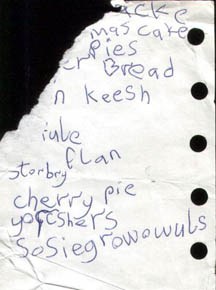 acke
mascake
Pies
Bread
n Keesh
flan
storbry
cherry pie
yorcshers
Sosiegrowowuls